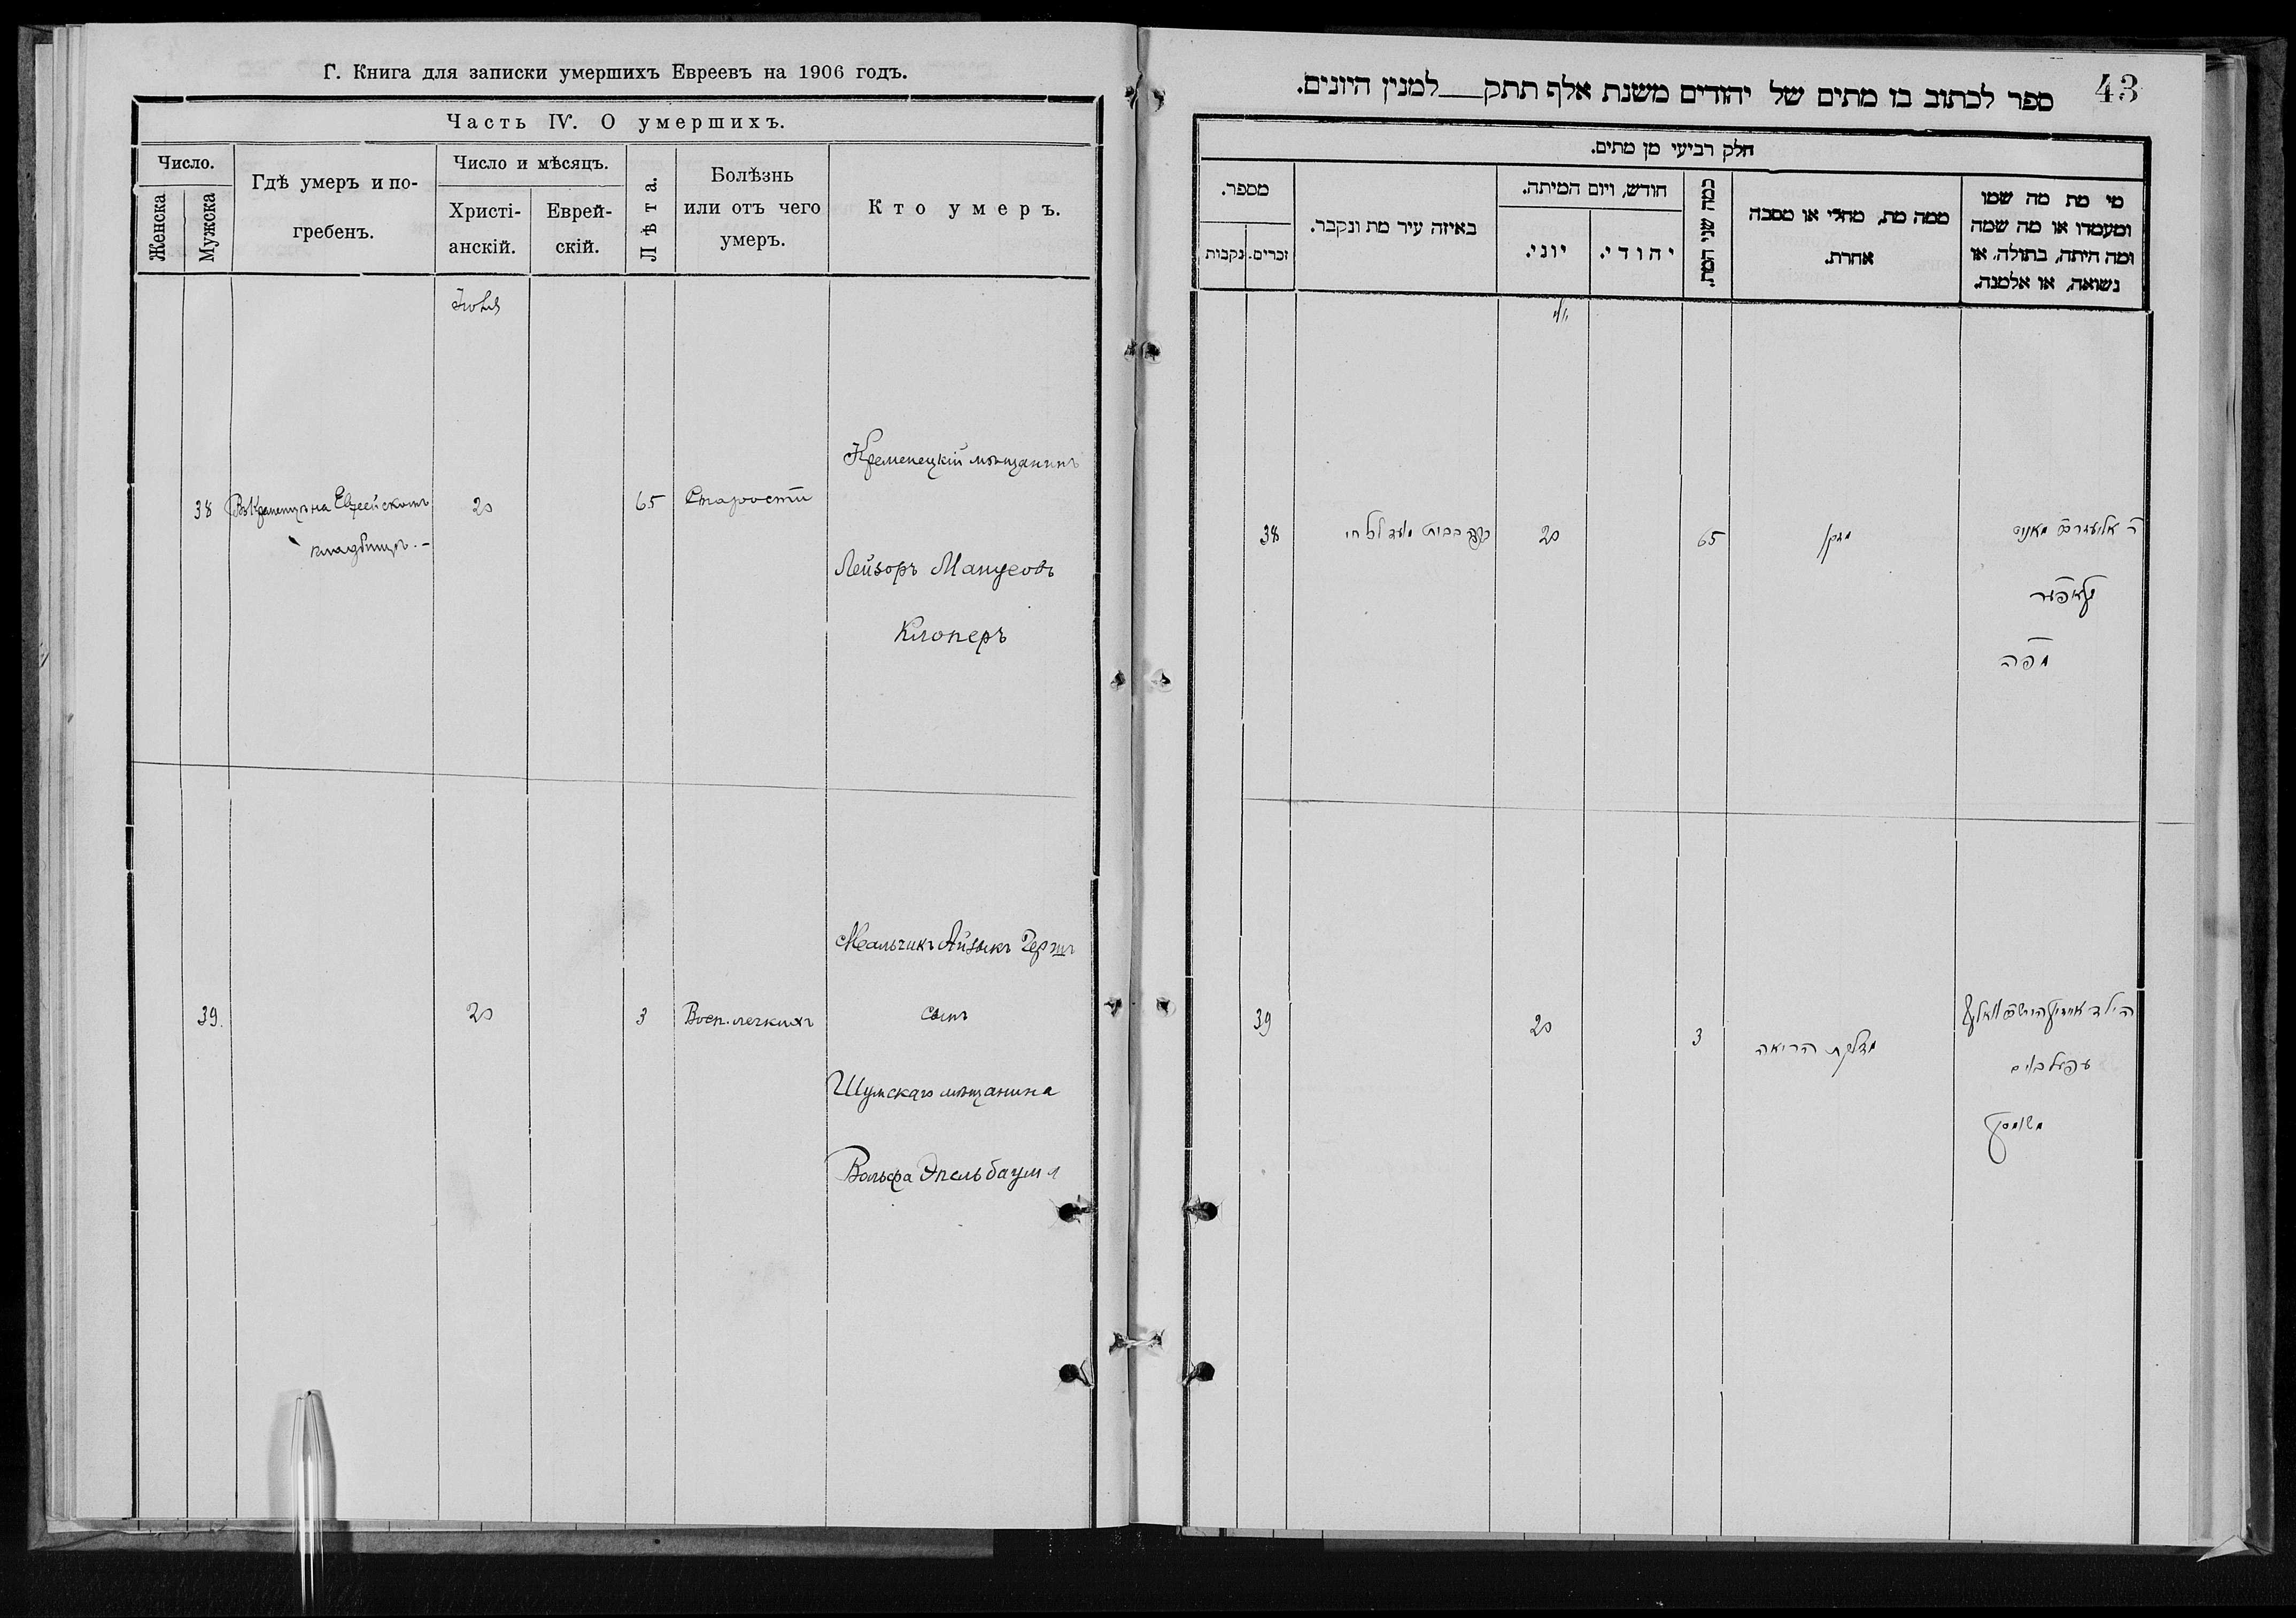 Г. Книга для записки умершихъ Евреевъ на 1906 годъ.
Часть IV. О умершихъ.
Число.
Женска
Мужска
Гдѣ умеръ и по-
гребенъ.
Число и мѣсяцъ.
Христі-
анскій.
Еврей-
скій.
Лѣта.
Болѣзнь
или отъ чего
умеръ.
Кто умеръ.
Іюля
38
Въ Кременцѣ на Еврейскомъ
кладбищѣ.-
20
65
Старости
Кременецкій мѣщанинъ
Лейзоръ Манусовъ
Клоперъ
39.
20
3
Восп. легкихъ
Мальчикъ Айзыкъ Гершъ
сынъ
Шумскаго мѣщанина
Вольфа Эпельбаума
43
ספר לכתוב בו מתים של יהודים משנת אלף תתק למנין היונים.
חלק רביעי מן מתים.
מי מת מה שמו
ומעמדו או מה שמה
ומה היתה, בתולה, או
נשואה, או אלמנה.
ממה מת, מחלי או מסבה
אחרת.
כמה שני המת.
חודש, ויום המיתה.
יהודי.
יוני.
באיזה עיר מת ונקבר.
מספר.
זכרים.
נקבות
יולי
38
20
65
מזקן
39
20
3
מדלקת הריאה
עפעלבוים
משומסק